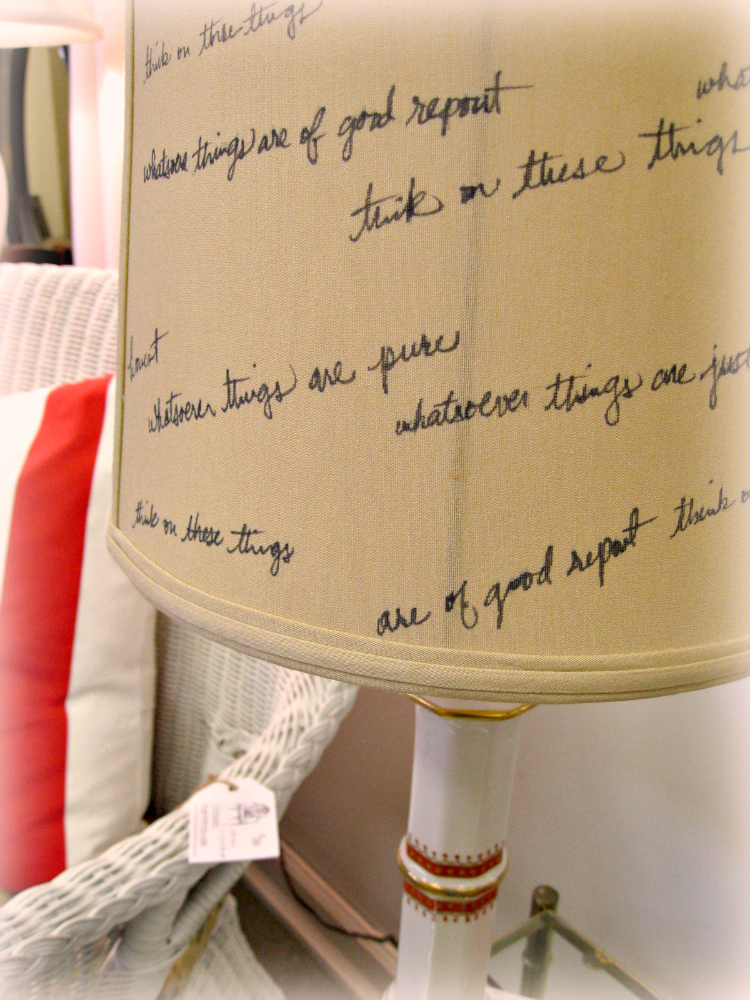 think on these things
whatsoever things are of good report
what
think on these things
honest
whatsoever things are pure
whatsoever things are just
think on these things
are of good report
think o